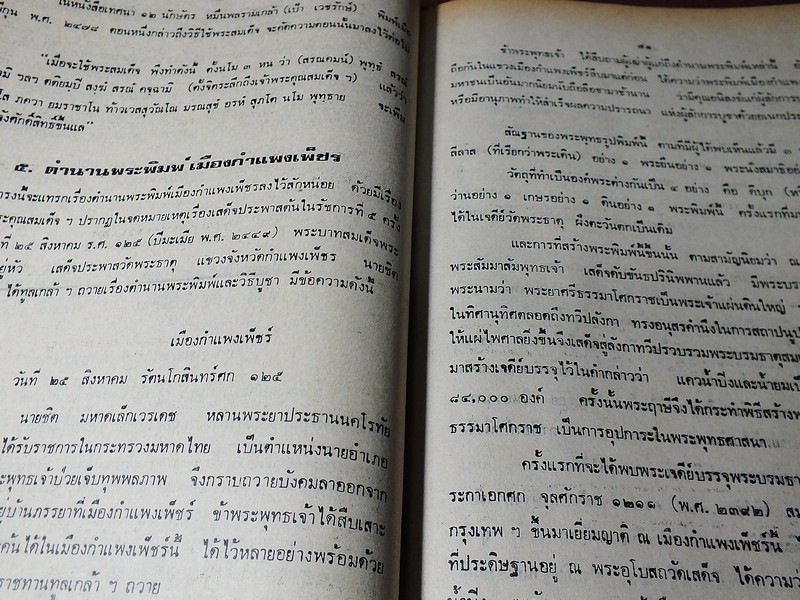 ในหนังสือเทศนา ๑๒ นักษัตร หมื่นพลรามเกล้า (เบ้า เวชรักษ์) พิมพ์เมื่อ
พ.ศ. ๒๔๗๘ ตอนหนึ่งกล่าวถึงวิธีใช้พระสมเด็จ จะคัดความตอนนั้นมาลงไว้ต่อไป
"เมื่อจะใช้พระสมเด็จ พึงทำดังนี้ ตั้งนโม ๓ หน ว่า (สรณคมน์) พุทฺธํ สรณํ
ฯลฯ ตติยมฺปิ สงฺฆํ สรณํ คจฺฉามิ (ครั้งระลึกถึงเจ้าพระคุณสมเด็จ ฯ) แล้วว่า
ภควา ยมราชาโน ท้าวเวสสุวัณโณ มรณสุขํ อรหํ สุคโต นโม พุทฺธาย จะเพิ่ม
ศักดิ์สิทธิ์ขึ้นแล"
๕. ตำนานพระพิมพ์เมืองกำแพงเพ็ชร
ตรงนี้จะแทรกเรื่องตำนานพระพิมพ์เมืองกำแพงเพ็ชรลงไว้สักหน่อย ด้วยมีเรื่อง
พระคุณสมเด็จ ฯ ปรากฏในจดหมายเหตุเรื่องเสด็จประพาสต้นในรัชการที่ ๕ ครั้ง
ที่ ๒๕ สิงหาคม ร.ศ. ๑๒๕ (ปีมะเมีย พ.ศ. ๒๔๔๙) พระบาทสมเด็จพระ
อยู่หัว เสด็จประพาสวัดพระธาตุ แขวงจังหวัดกำแพงเพ็ชร นายชิต
ได้ทูลเกล้า ฯ ถวายเรื่องตำนานพระพิมพ์และวิธีบูชา มีข้อความดังนี้
เมืองกำแพงเพ็ชร์
วันที่ ๒๕ สิงหาคม รัตนโกสินทร์ศก ๑๒๕
นายชิต มหาดเล็กเวรเดช หลานพระยาประธานนคโรทัย
ได้รับราชการในกระทรวงมหาดไทย เป็นตำแหน่งนายอำเภอ
พระพุทธเจ้าป่วยเจ็บทุพพลภาพ จึงกราบถวายบังคมลาออกจาก
อยู่บ้านภรรยาที่เมืองกำแพงเพ็ชร์ ข้าพระพุทธเจ้าได้สืบเสาะ
ค้นได้ในเมืองกำแพงเพ็ชร์นี้ ได้ไว้หลายอย่างพร้อมด้วย
ราชทานทูลเกล้า ฯ ถวาย
๔๑
ข้าพระพุทธเจ้า ได้สืบถามผู้เฒ่าผู้แก่ถึงตำนานพระพิมพ์เหล่านี้
ถือกันในแขวงเมืองกำแพงเพ็ชร์สืบมาแต่ก่อน ได้ความว่าพระพิมพ์เมืองกำแพง
มหาชนเป็นอันมากนิยมนับถือลือชามาช้านาน ว่ามีคุณอนิสงฆ์แก่ผู้สักการ
หรือมีอานุภาพทำให้สำเร็จผลความปรารถนา แห่งผู้สักการบูชาด้วยอเนกประ
สัณฐานของพระพุทธรูปพิมพ์นี้ ตามที่มีผู้ได้พบเห็นแล้วมี ๓
ลีลาส (ที่เรียกว่าพระเดิน) อย่าง ๑ พระยืนอย่าง ๑ พระนั่งสมาธิอย่
วัตถุที่ทำเป็นองค์พระต่างกันเป็น ๔ อย่าง คือ ดีบุก
ว่านอย่าง ๑ เกษรอย่าง ๑ ดินอย่าง ๑ พระพิมพ์นี้ ครั้งแรกที่
ได้ในเจดีย์วัดพระธาตุ ฝั่งตะวันตกเป็นเดิม
และการที่สร้างพระพิมพ์นี้ขึ้นนั้น ตามสามัญนิยมว่า ณ
พระสัมมาสัมพุทธเจ้า เสด็จดับขันธปรินิพพานแล้ว มีพระบร
พระนามว่า พระยาศรีธรรมาโศกราชเป็นพระเจ้าแผ่นดินใหญ่
ในทิศานุทิศตลอดถึงทวีปลังกา ทรงอนุสรคำนึงในการสถาปนูป
ให้แผ่ไพศาลยิ่งขึ้นจึงเสด็จสู่ลังกาทวีปรวบรวมพระบรมธาตุ
มาสร้างเจดีย์บรรจุไว้ในคำกล่าวว่า แควน้ำปิงและน้ำยมเป็
๘๔,๐๐๐ องค์ ครั้งนั้นพระฤาษีจึงได้กระทำพิธีสร้าง
ธรรมาโศกราช เป็นการอุปการะในพระพุทธศาสนา
ครั้งแรกที่จะได้พบพระเจดีย์บรรจุพระบรมธา
ระกาเอกศก จุลศักราช ๑๒๑๑ (พ.ศ. ๒๓๙๒)
กรุงเทพ ฯ ขึ้นมาเยี่ยมญาติ ณ เมืองกำแพงเพ็ชร์นี้
ที่ประดิษฐานอยู่ ณ พระอุโบสถวัดเสด็จ ได้ความว่